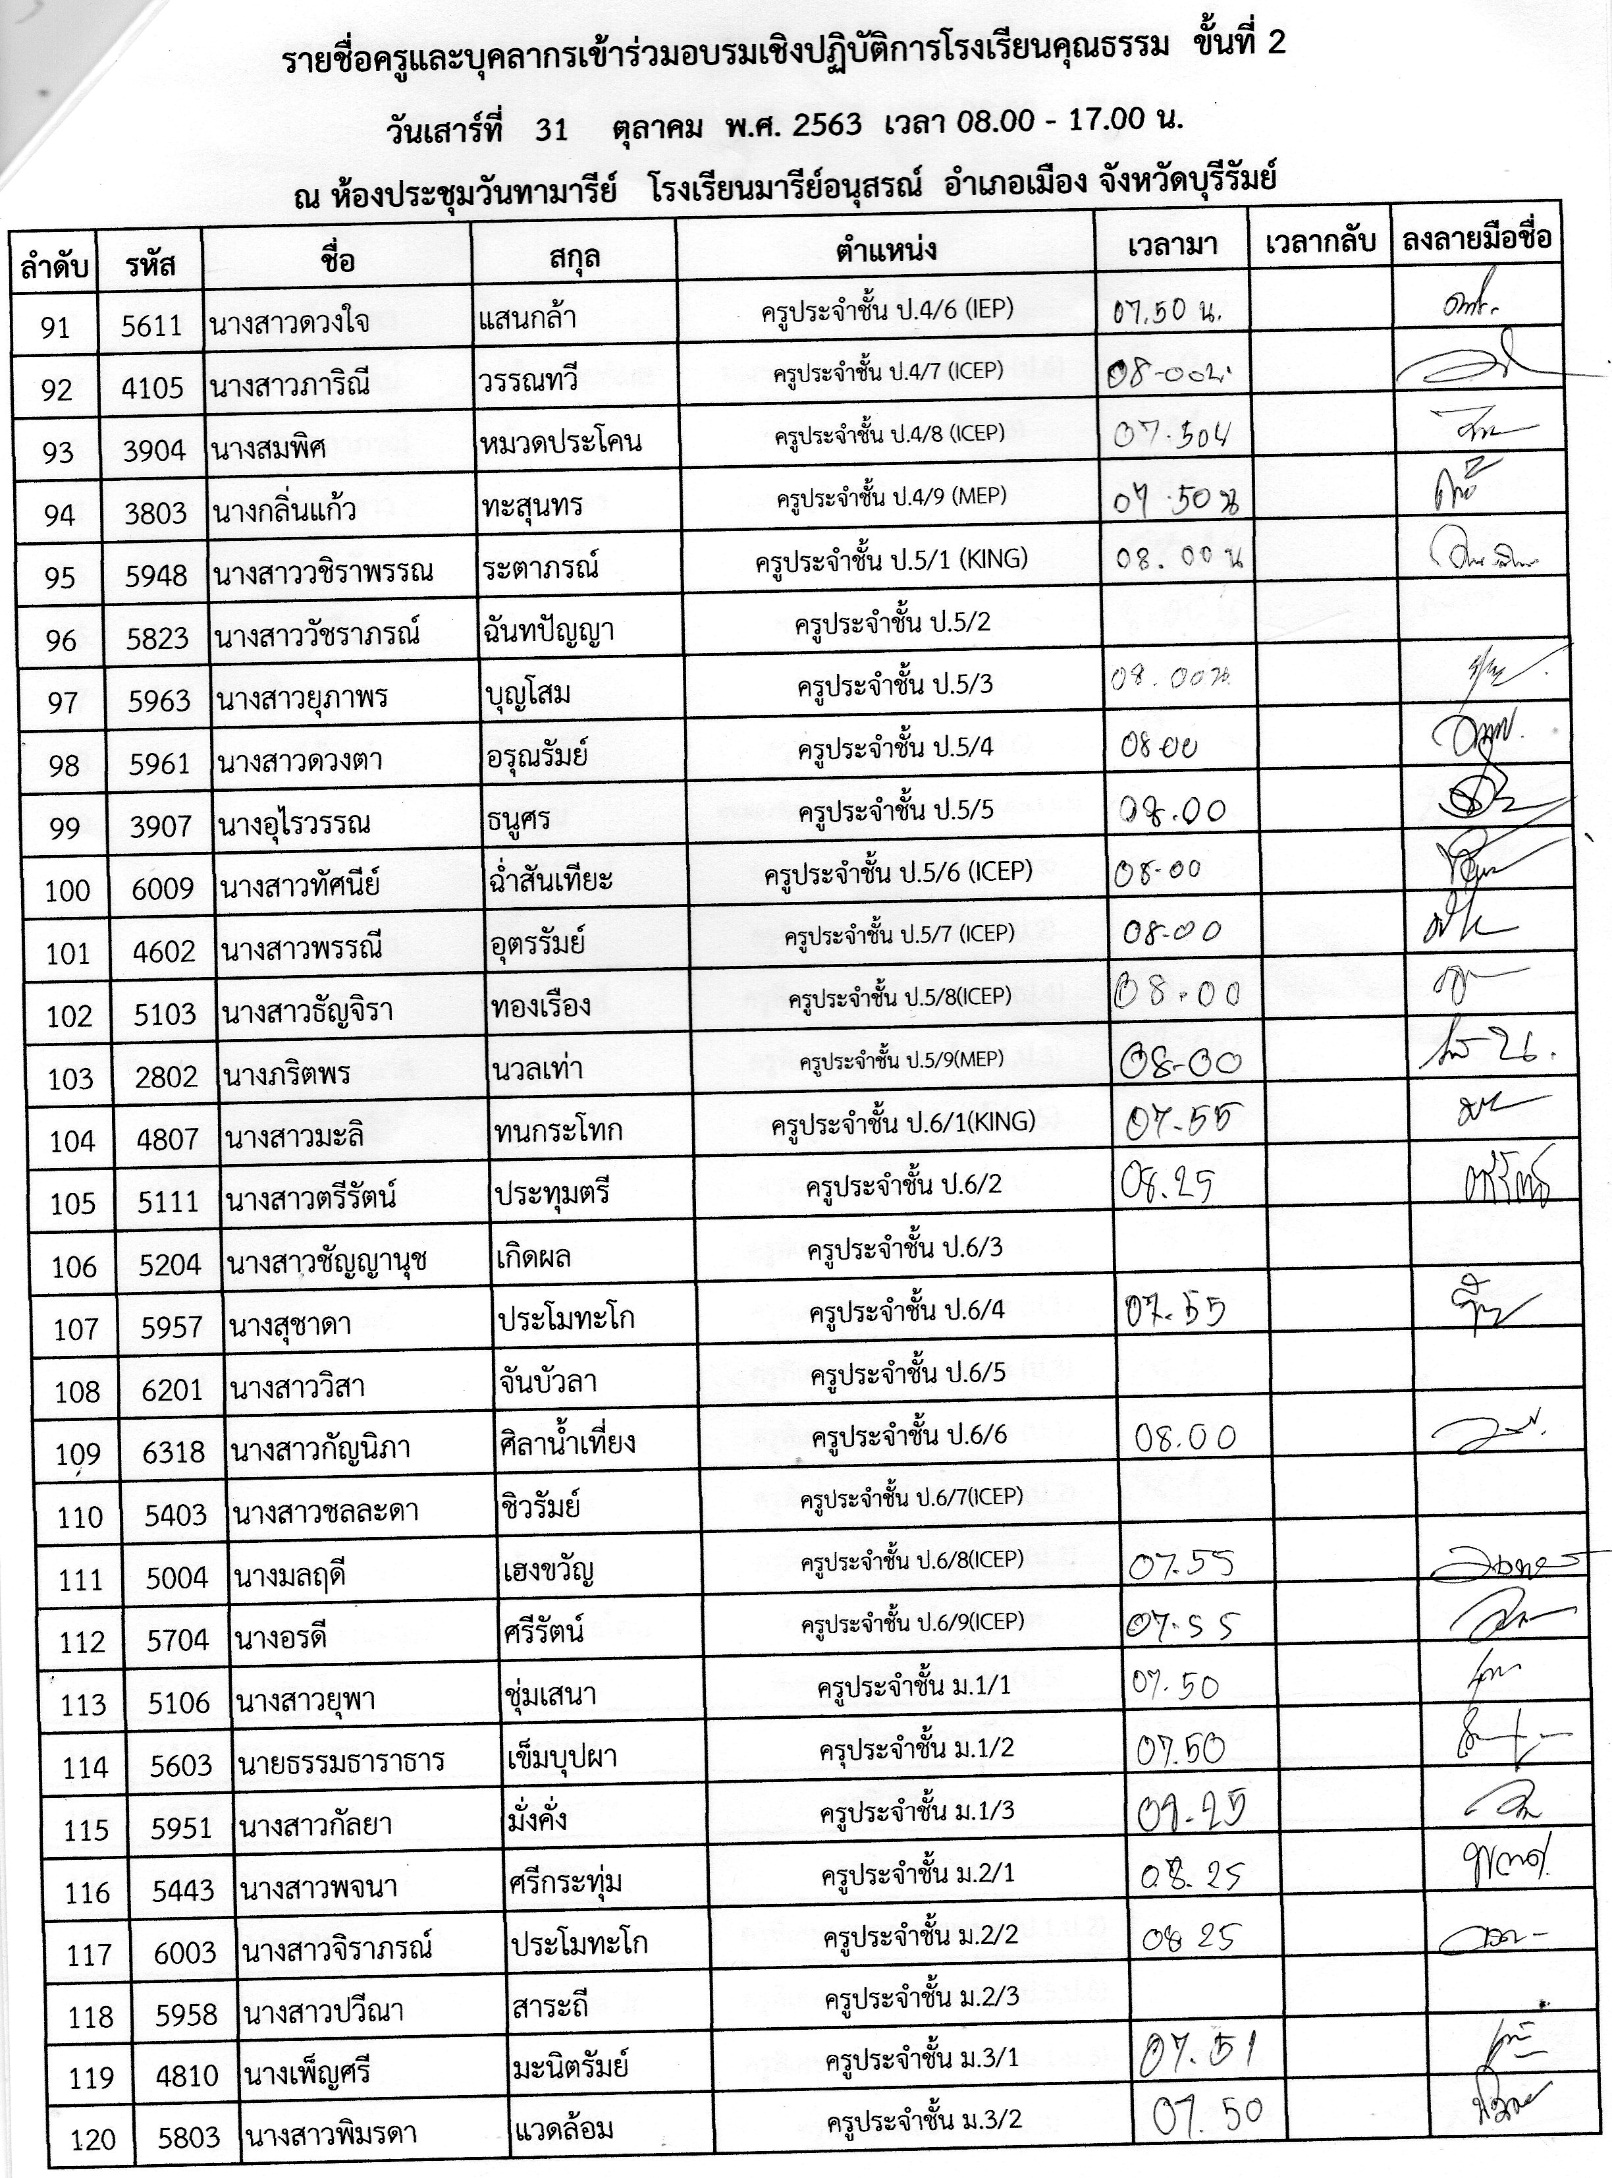 รายชื่อครูและบุคลากรเข้าร่วมอบรมเชิงปฏิบัติการโรงเรียนคุณธรรม ขั้นที่ 2
วันเสาร์ที่ 31 ตุลาคม พ.ศ. 2563 เวลา 08.00 - 17.00 น.
ณ ห้องประชุมวันทามารีย์ โรงเรียนมารีย์อนุสรณ์ อำเภอเมือง จังหวัดบุรีรัมย์
ลำดับ รหัส ชื่อ สกุล ตำแหน่ง เวลามา เวลากลับ ลงลายมือชื่อ
91 5611 นางสาวดวงใจ แสนกล้า ครูประจำชั้น ป.4/6 (IEP) 07.50 น.
92 4105 นางสาวภาริณี วรรณทวี ครูประจำชั้น ป.4/7 (ICEP) 08-00น.
93 3904 นางสมพิศ หมวดประโคน ครูประจำชั้น ป.4/8 (ICEP) 07.50น
94 3803 นางกลิ่นแก้ว ทะสุนทร ครูประจำชั้น ป.4/9 (MEP) 07.50น
95 5948 นางสาววชิราพรรณ ระตาภรณ์ ครูประจำชั้น ป.5/1 (KING) 08.00น
96 5823 นางสาววัชราภรณ์ ฉันทปัญญา ครูประจำชั้น ป.5/2
97 5963 นางสาวยุภาพร บุญโสม ครูประจำชั้น ป.5/3 08.00น.
98 5961 นางสาวดวงตา อรุณรัมย์ ครูประจำชั้น ป.5/4 08.00
99 3907 นางอุไรวรรณ ธนูศร ครูประจำชั้น ป.5/5 08.00
100 6009 นางสาวทัศนีย์ ฉ่ำสันเทียะ ครูประจำชั้น ป.5/6 (ICEP) 08-00
101 4602 นางสาวพรรณี อุตรรัมย์ ครูประจำชั้น ป.5/7 (ICEP) 08-00
102 5103 นางสาวธัญจิรา ทองเรือง ครูประจำชั้น ป.5/8(ICEP) 08.00
103 2802 นางภริตพร นวลเท่า ครูประจำชั้น ป.5/9(MEP) 08-00
104 4807 นางสาวมะลิ ทนกระโทก ครูประจำชั้น ป.6/1(KING) 07-55
105 5111 นางสาวตรีรัตน์ ประทุมตรี ครูประจำชั้น ป.6/2 08.25 ตรีรัตน์
106 5204 นางสาวชัญญานุช เกิดผล ครูประจำชั้น ป.6/3
107 5957 นางสุชาดา ประโมทะโก ครูประจำชั้น ป.6/4 07.55
108 6201 นางสาววิสา จันบัวลา ครูประจำชั้น ป.6/5
109 6318 นางสาวกัญนิภา ศิลาน้ำเที่ยง ครูประจำชั้น ป.6/6 08.00
110 5403 นางสาวชลละดา ชิวรัมย์ ครูประจำชั้น ป.6/7(ICEP)
111 5004 นางมลฤดี เฮงขวัญ ครูประจำชั้น ป.6/8(ICEP) 07.55
112 5704 นางอรดี ศรีรัตน์ ครูประจำชั้น ป.6/9(ICEP) 07.55
113 5106 นางสาวยุพา ชุ่มเสนา ครูประจำชั้น ม.1/1 07.50
114 5603 นายธรรมธาราธาร เข็มบุปผา ครุประจำชั้น ม.1/2 07.50
115 5951 นางสาวกัลยา มั่งคั่ง ครูประจำชั้น ม.1/3
116 5443 นางสาวพจนา ศรีกระทุ่ม ครูประจำชั้น ม.2/1 08.25
117 6003 นางสาวจิราภรณ์ ประโมทะโก ครูประจำชั้น ม.2/2 08 25
118 5958 นางสาวปวีณา สาระถี ครูประจำชั้น ม.2/3
119 4810 นางเพ็ญศรี มะนิตรัมย์ ครูประจำชั้น ม.3/1 07.51
120 5803 นางสาวพิมรดา แวดล้อม ครูประจำชั้น ม.3/2 07.50